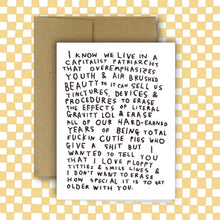 I KNOW WE LIVE IN A
CAPITALIST PATRIARCHY
THAT OVEREMPHASIZES
YOUTH & AIR BRUSHED
BEAUTY SO IT CAN SELL US
TINCTURES, DEVICES &
PROCEDURES TO ERASE
THE EFFECTS OF LITERAL
GRAVITY LOL & ERASE
ALL OF OUR HARD-EARNED
YEARS OF BEING TOTAL
FUCKIN CUTIE PIES WHO
GIVE A SHIT BUT I
WANTED TO TELL YOU
THAT I LOVE FLOPPY
TITTIES & SMILE LINES &
I DON'T WANT TO ERASE
HOW SPECIAL IT IS TO GET
OLDER WITH YOU.